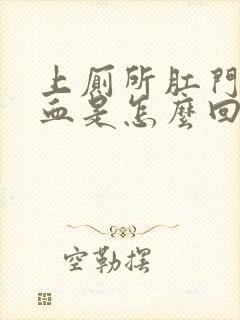 上厕所肛門
血是怎麼回
空勒摆